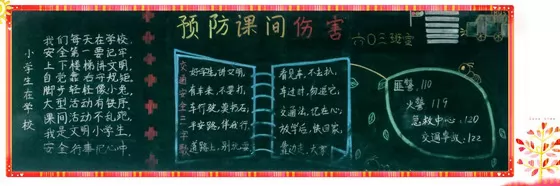 预防课间伤害
六〇三班宣
小学生在学校
我们每天在学校,
安全第一要记牢
上下楼梯讲文明,
自觉靠右守规矩,
脚步轻轻像小兔,
大型活动有秩序,
课间活动不乱跑,
我是文明小学生,
安全行事记心中,
交通安全三字歌
好学生,讲文明,
有车来,不要打,
车行驶,莫抛石,
平安路,伴我行,
道路上,别北
看见车,不去扒,
车过时,勿追它,
交通法,记在心,
放学后,快回家,
匪警:110
火警119
急救中心:120
交通事故:122